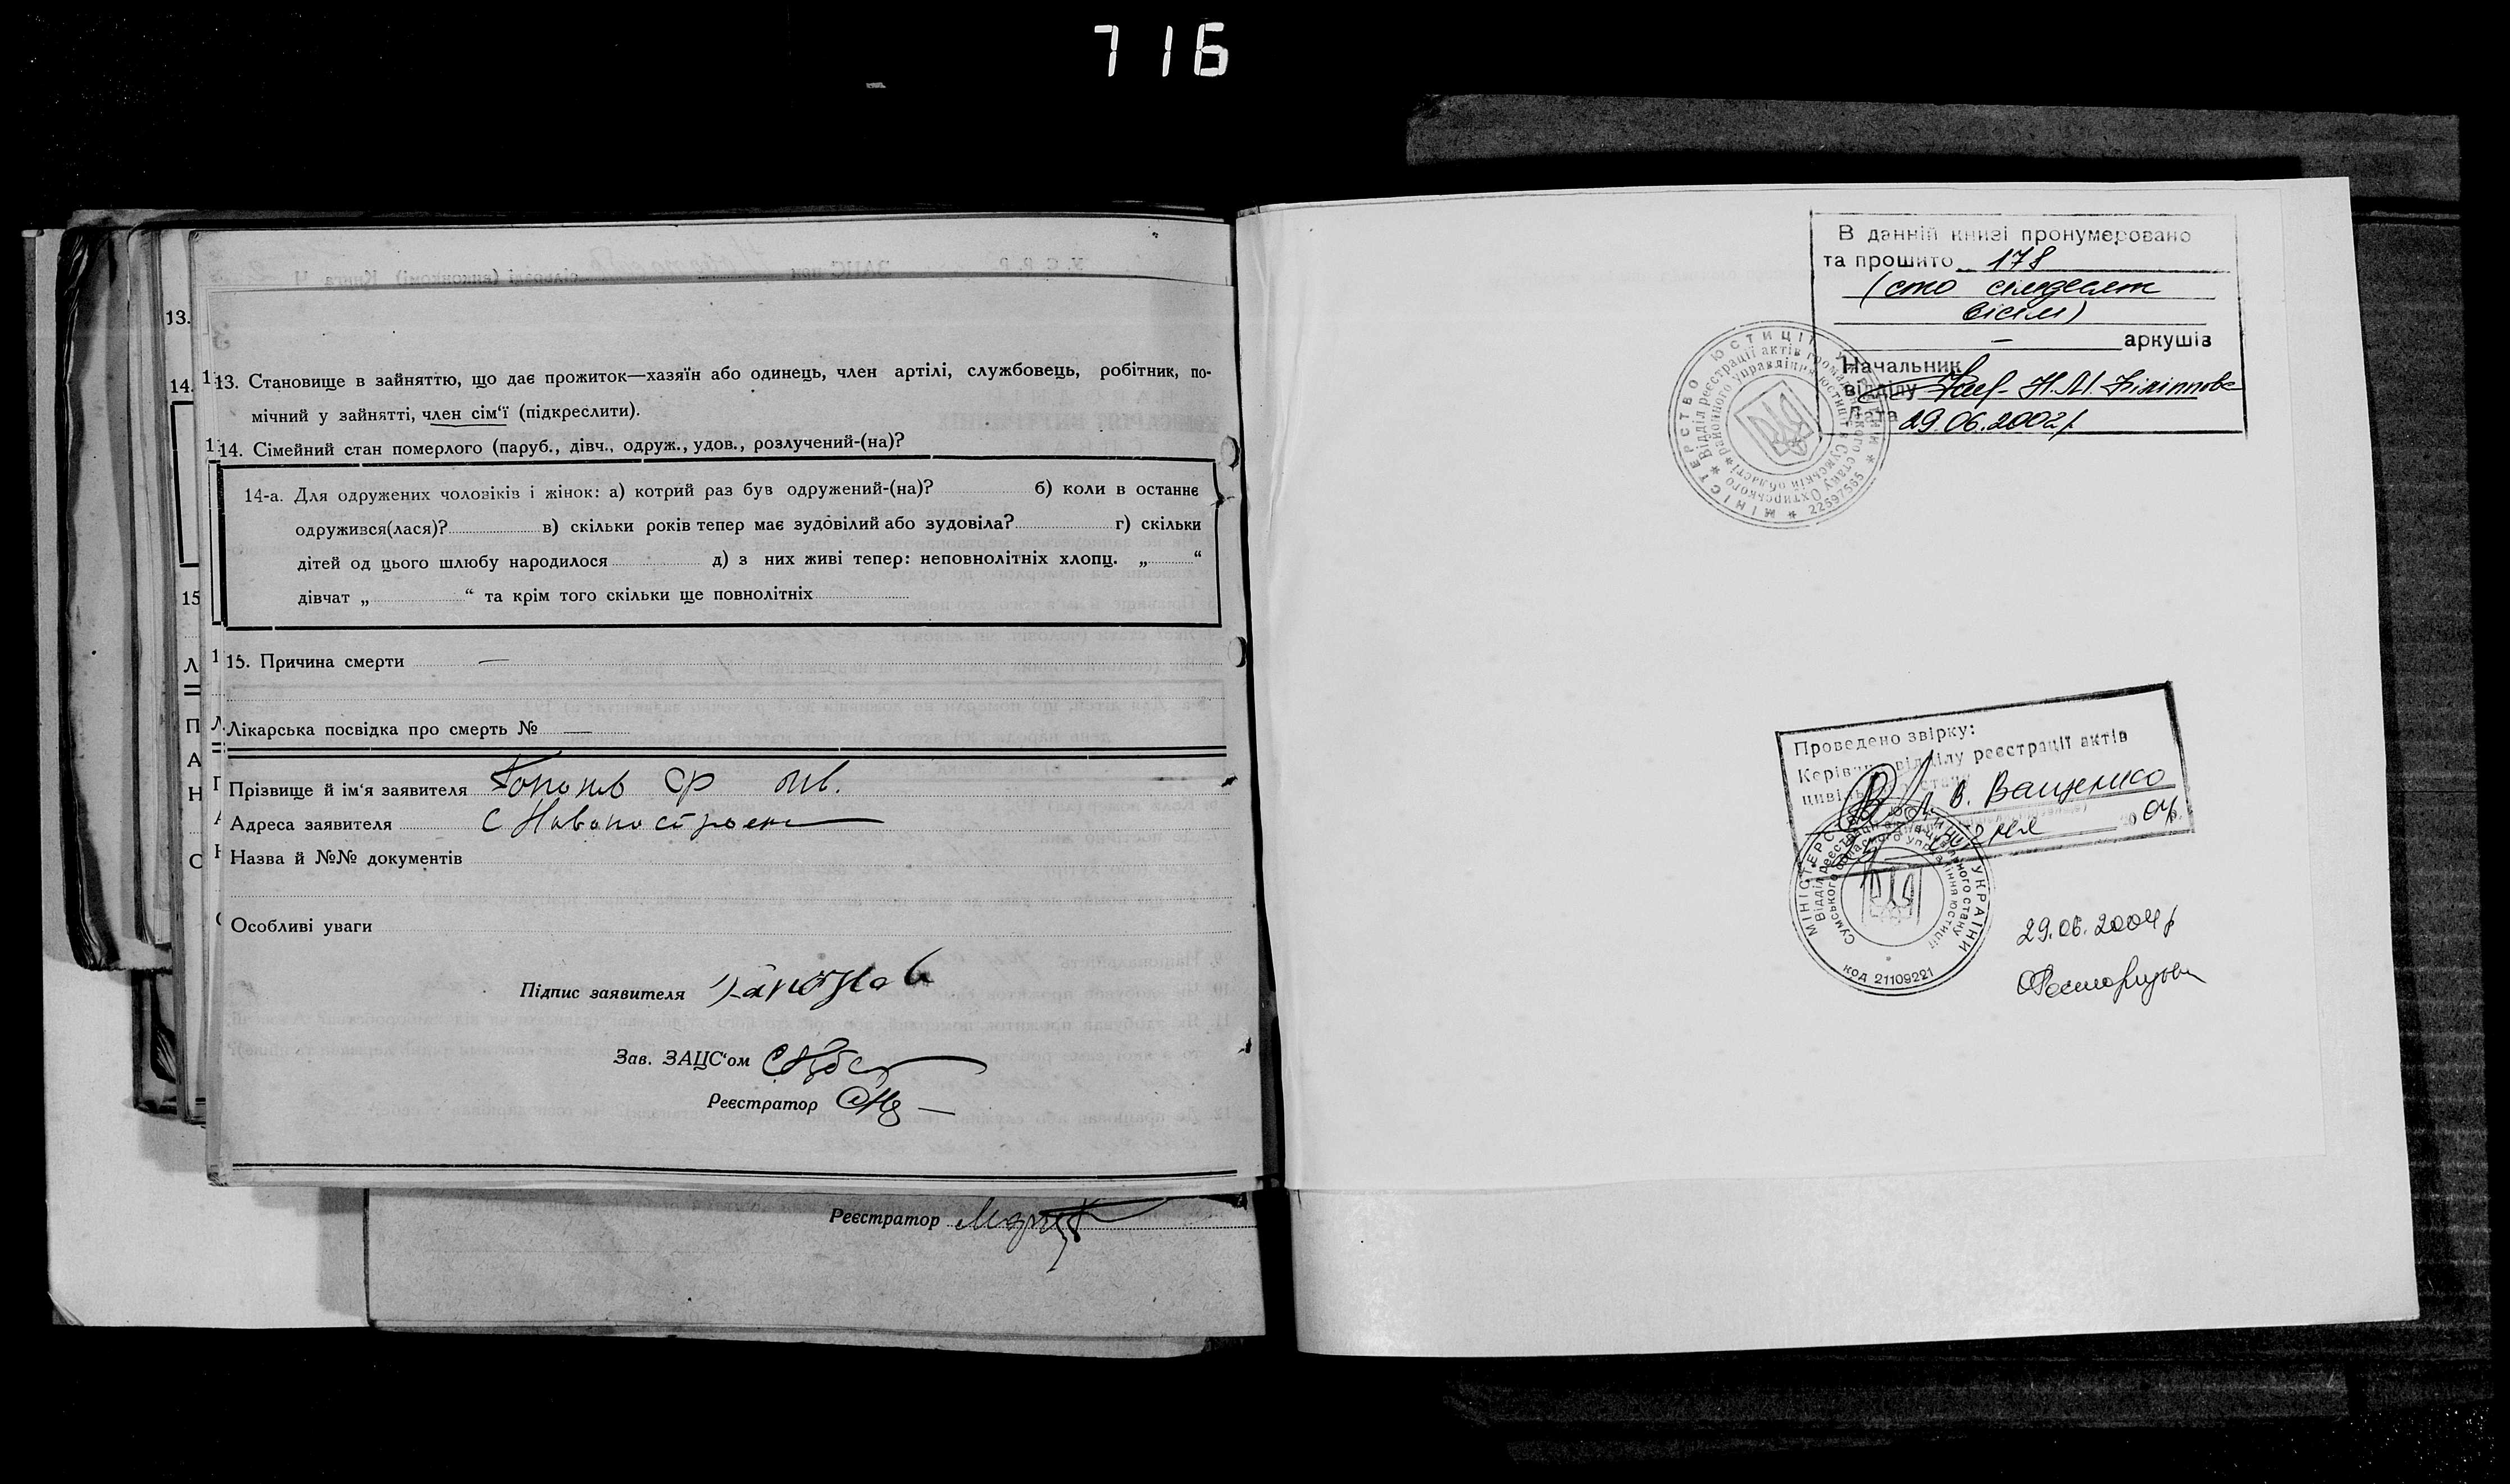 716
13. Становище в зайняттю, що дає прожиток—хазяїн або одинець, член артілі, службовець, робітник, по-
мічний у зайнятті, член сім'ї (підкреслити).
14. Сімейний стан померлого (паруб., дівч., одруж., удов., розлучений-(на)?
14-а. Для одружених чоловіків і жінок: а) котрий раз був одружений-(на)? б) коли в останнє
одружився(лася)? в) скільки років тепер має зудовілий або зудовіла? г) скільки
дітей од цього шлюбу народилося д) з них живі тепер: неповнолітніх хлопц. „ “
дівчат „ “ та крім того скільки ще повнолітніх
15. Причина смерти —
Лікарська посвідка про смерть № —
Прізвище й ім'я заявителя
Адреса заявителя с Новопостроєн
Назва й №№ документів
Особливі уваги
Підпис заявителя
Зав. ЗАЦС'ом
Реєстратор
Реєстратор
13.
14.
15
В данній книзі пронумеровано
та прошито 178
(сто сімдесят
вісім)
— аркушів
Начальник
відділу Н.М. Філіппова
Дата 29.06.2002р
МІНІСТЕРСТВО ЮСТИЦІЇ УКРАЇНИ
Відділ реєстрації актів громадянського стану Охтирського
районного управління юстиції в Сумській області
22597565
Проведено звірку:
Керівник відділу реєстрації актів
цивільного стану
Л. В. Ващенко
2004р.
МІНІСТЕРСТВО ЮСТИЦІЇ УКРАЇНИ
Відділ реєстрації актів цивільного стану
Сумського обласного управління юстиції
код 21109221
29.06.2004р